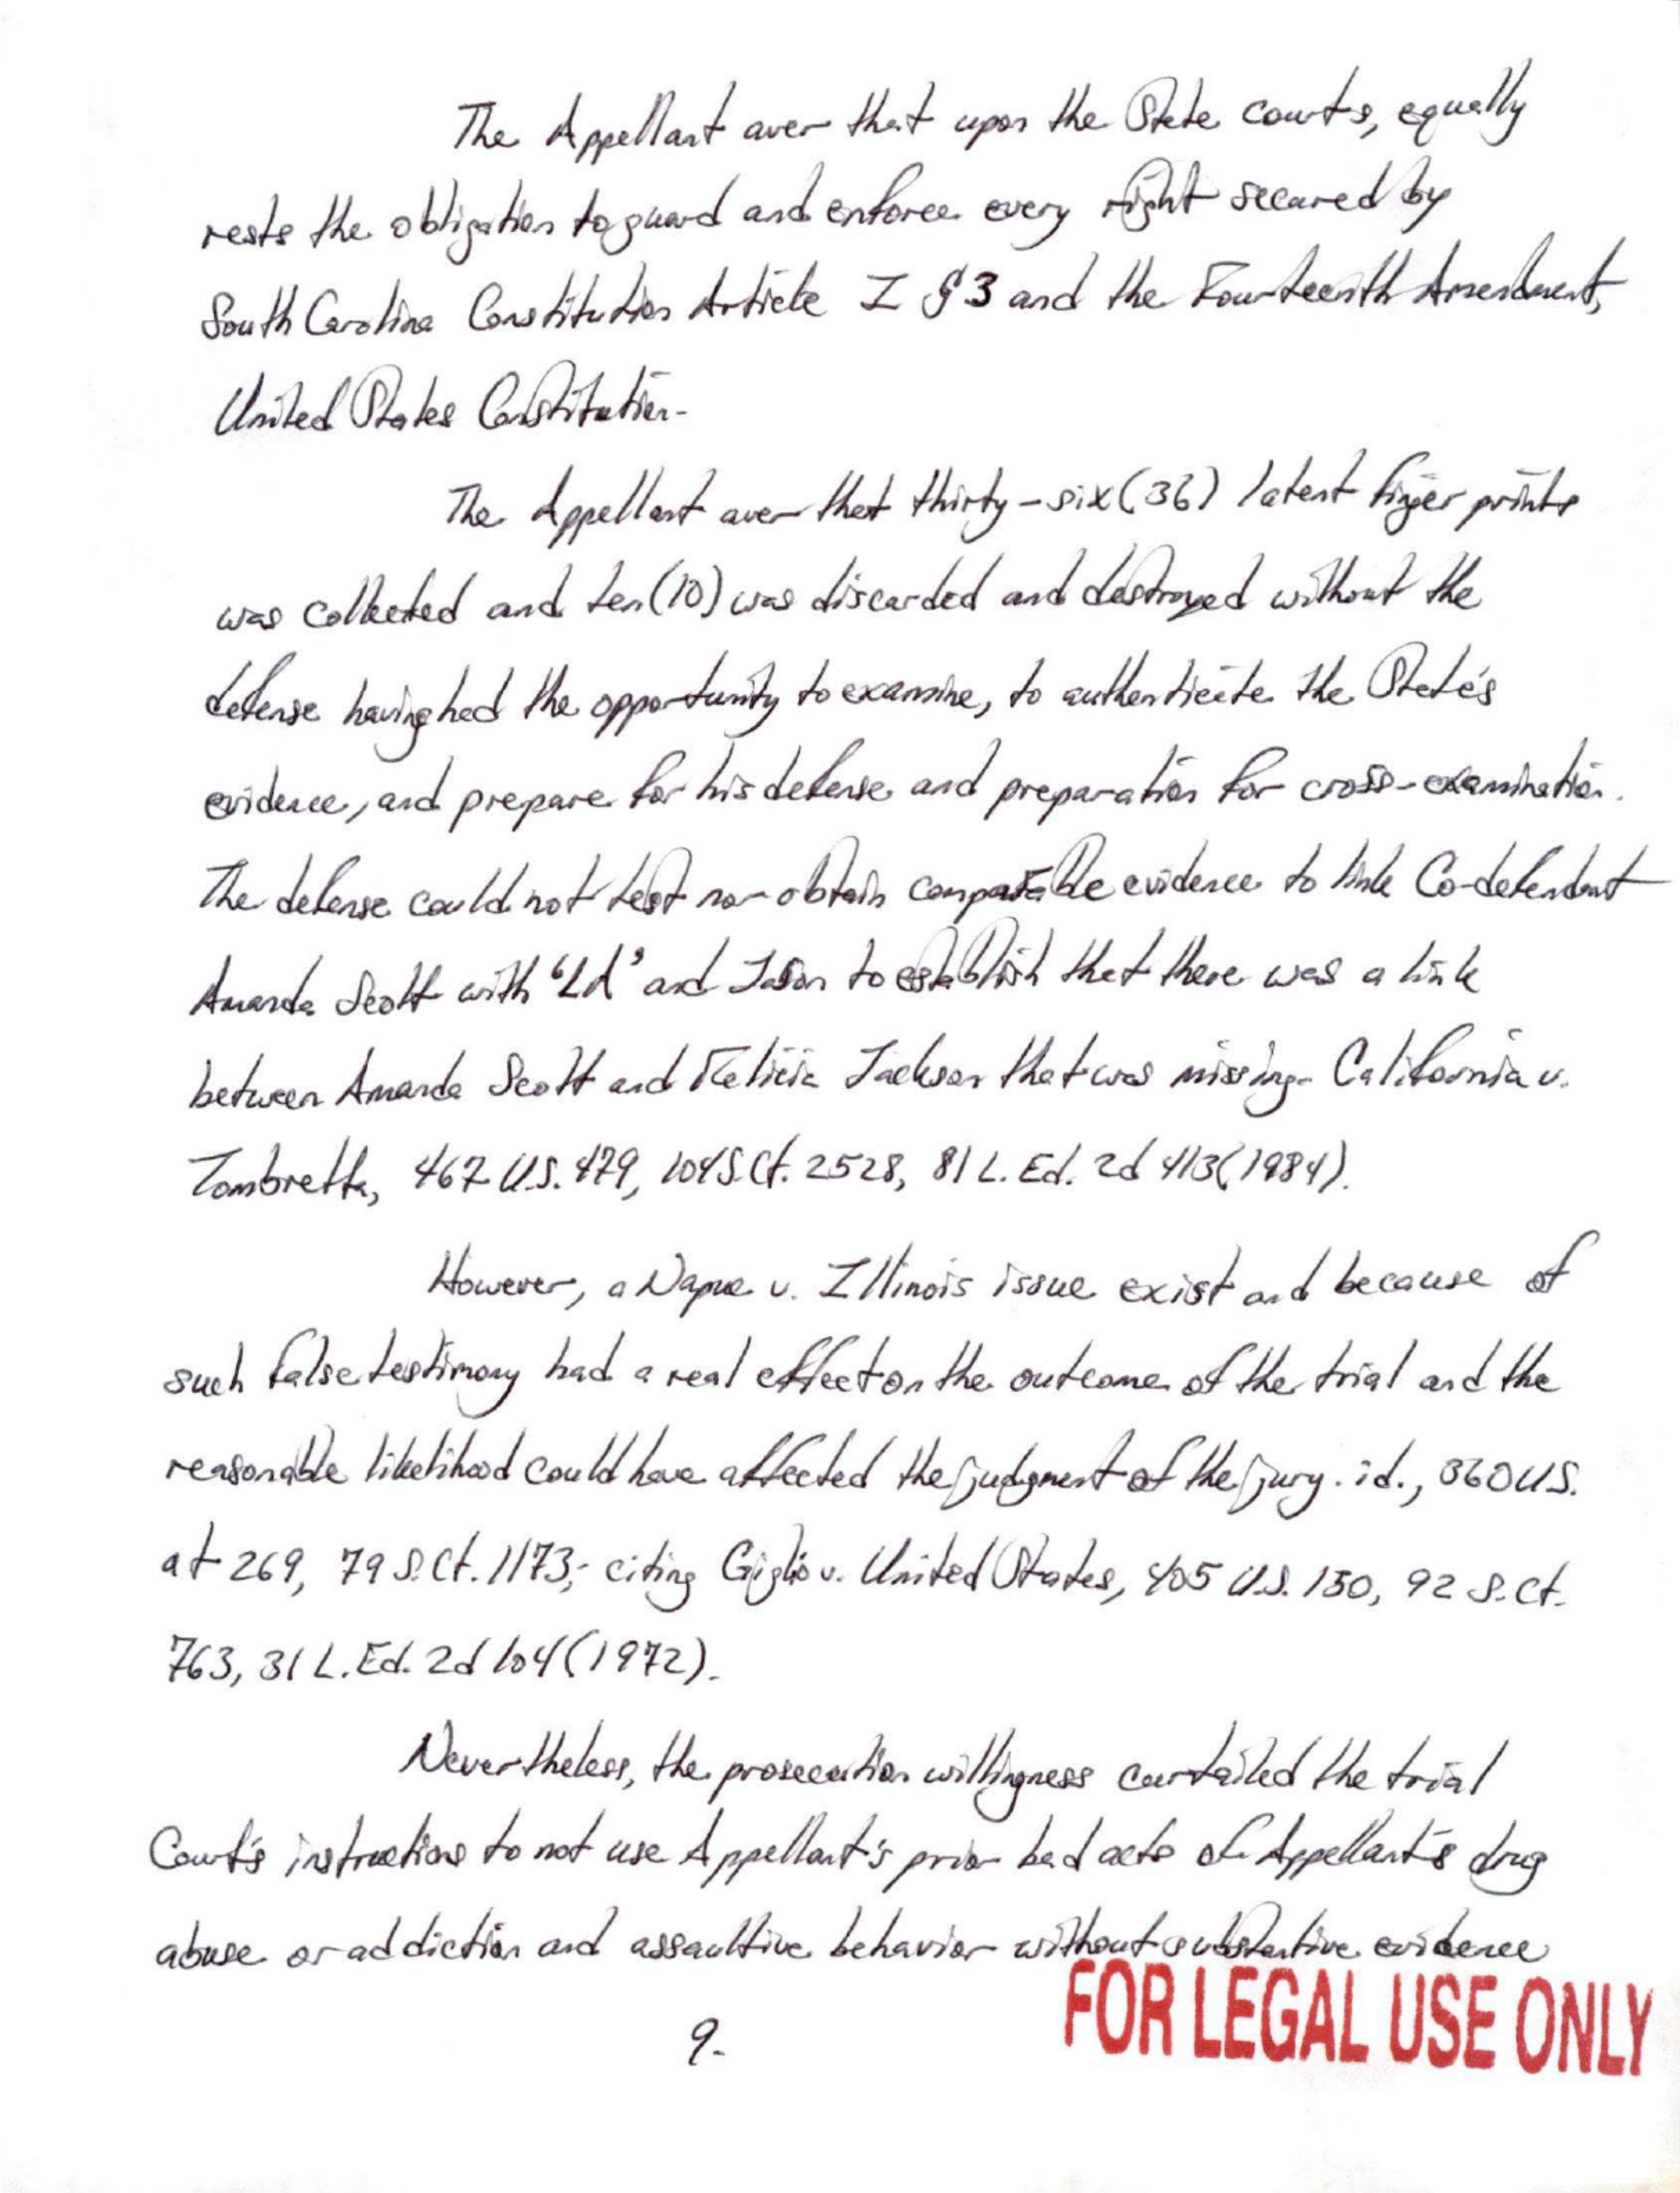 The Appellant aver that upon the State courts, equally
rests the obligation to guard and enforce every right secured by
South Carolina Constitution Article I § 3 and the Fourteenth Amendment,
United States Constitution.
The Appellant aver that thirty-six (36) latent finger prints
was collected and ten (10) was discarded and destroyed without the
defense having had the opportunity to examine, to authenticate the State's
evidence, and prepare for his defense and preparation for cross-examination.
The defense could not test nor obtain comparable evidence to link Co-defendant
Amanda Scott with 'LA' and Jason to establish that there was a link
between Amanda Scott and Felicia Jackson that was missing. California v.
Tombretta, 467 U.S. 479, 104 S.Ct. 2528, 81 L. Ed. 2d 413 (1984).
However, a Napue v. Illinois issue exist and because of
such false testimony had a real effect on the outcome of the trial and the
reasonable likelihood could have affected the judgment of the jury. id., 360 U.S.
at 269, 79 S.Ct. 1173; citing Giglio v. United States, 405 U.S. 150, 92 S.Ct.
763, 31 L.Ed. 2d 104 (1972).
Nevertheless, the prosecution willingness curtailed the trial
Court's instructions to not use Appellant's prior bad acts of Appellant's drug
abuse or addiction and assaultive behavior without substantive evidence
9.
FOR LEGAL USE ONLY